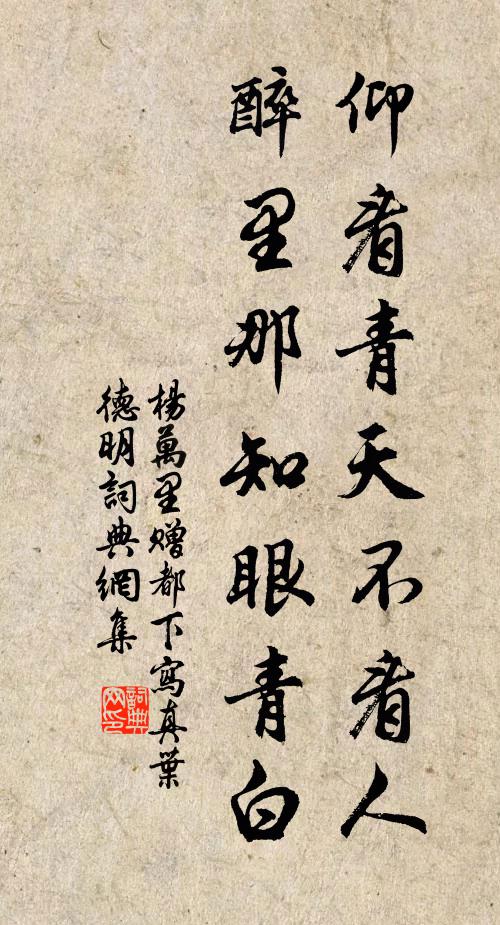 仰看青天不看人
醉里那知眼青白
楊萬里贈都下寫真葉
德明詞典網集
詞典
网印